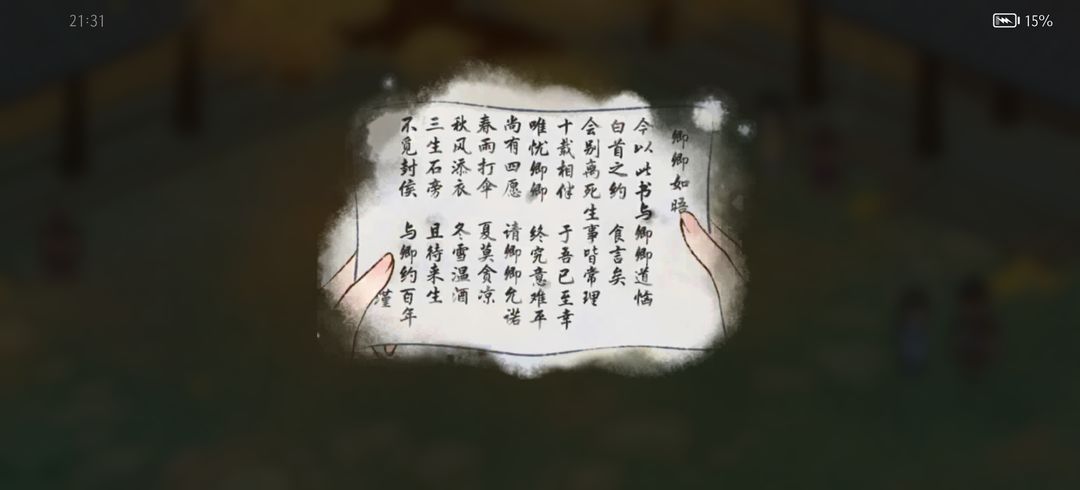 21:31
15%
卿卿如晤
今以此书与卿卿道恼
白首之约 食言矣
会别离死生事皆常理
十载相伴 于吾已至幸
唯忧卿卿 终究意难平
尚有四愿 请卿卿允诺
春雨打伞 夏莫贪凉
秋风添衣 冬雪温酒
三生石旁 且待来生
不觅封侯 与卿约百年
瑾